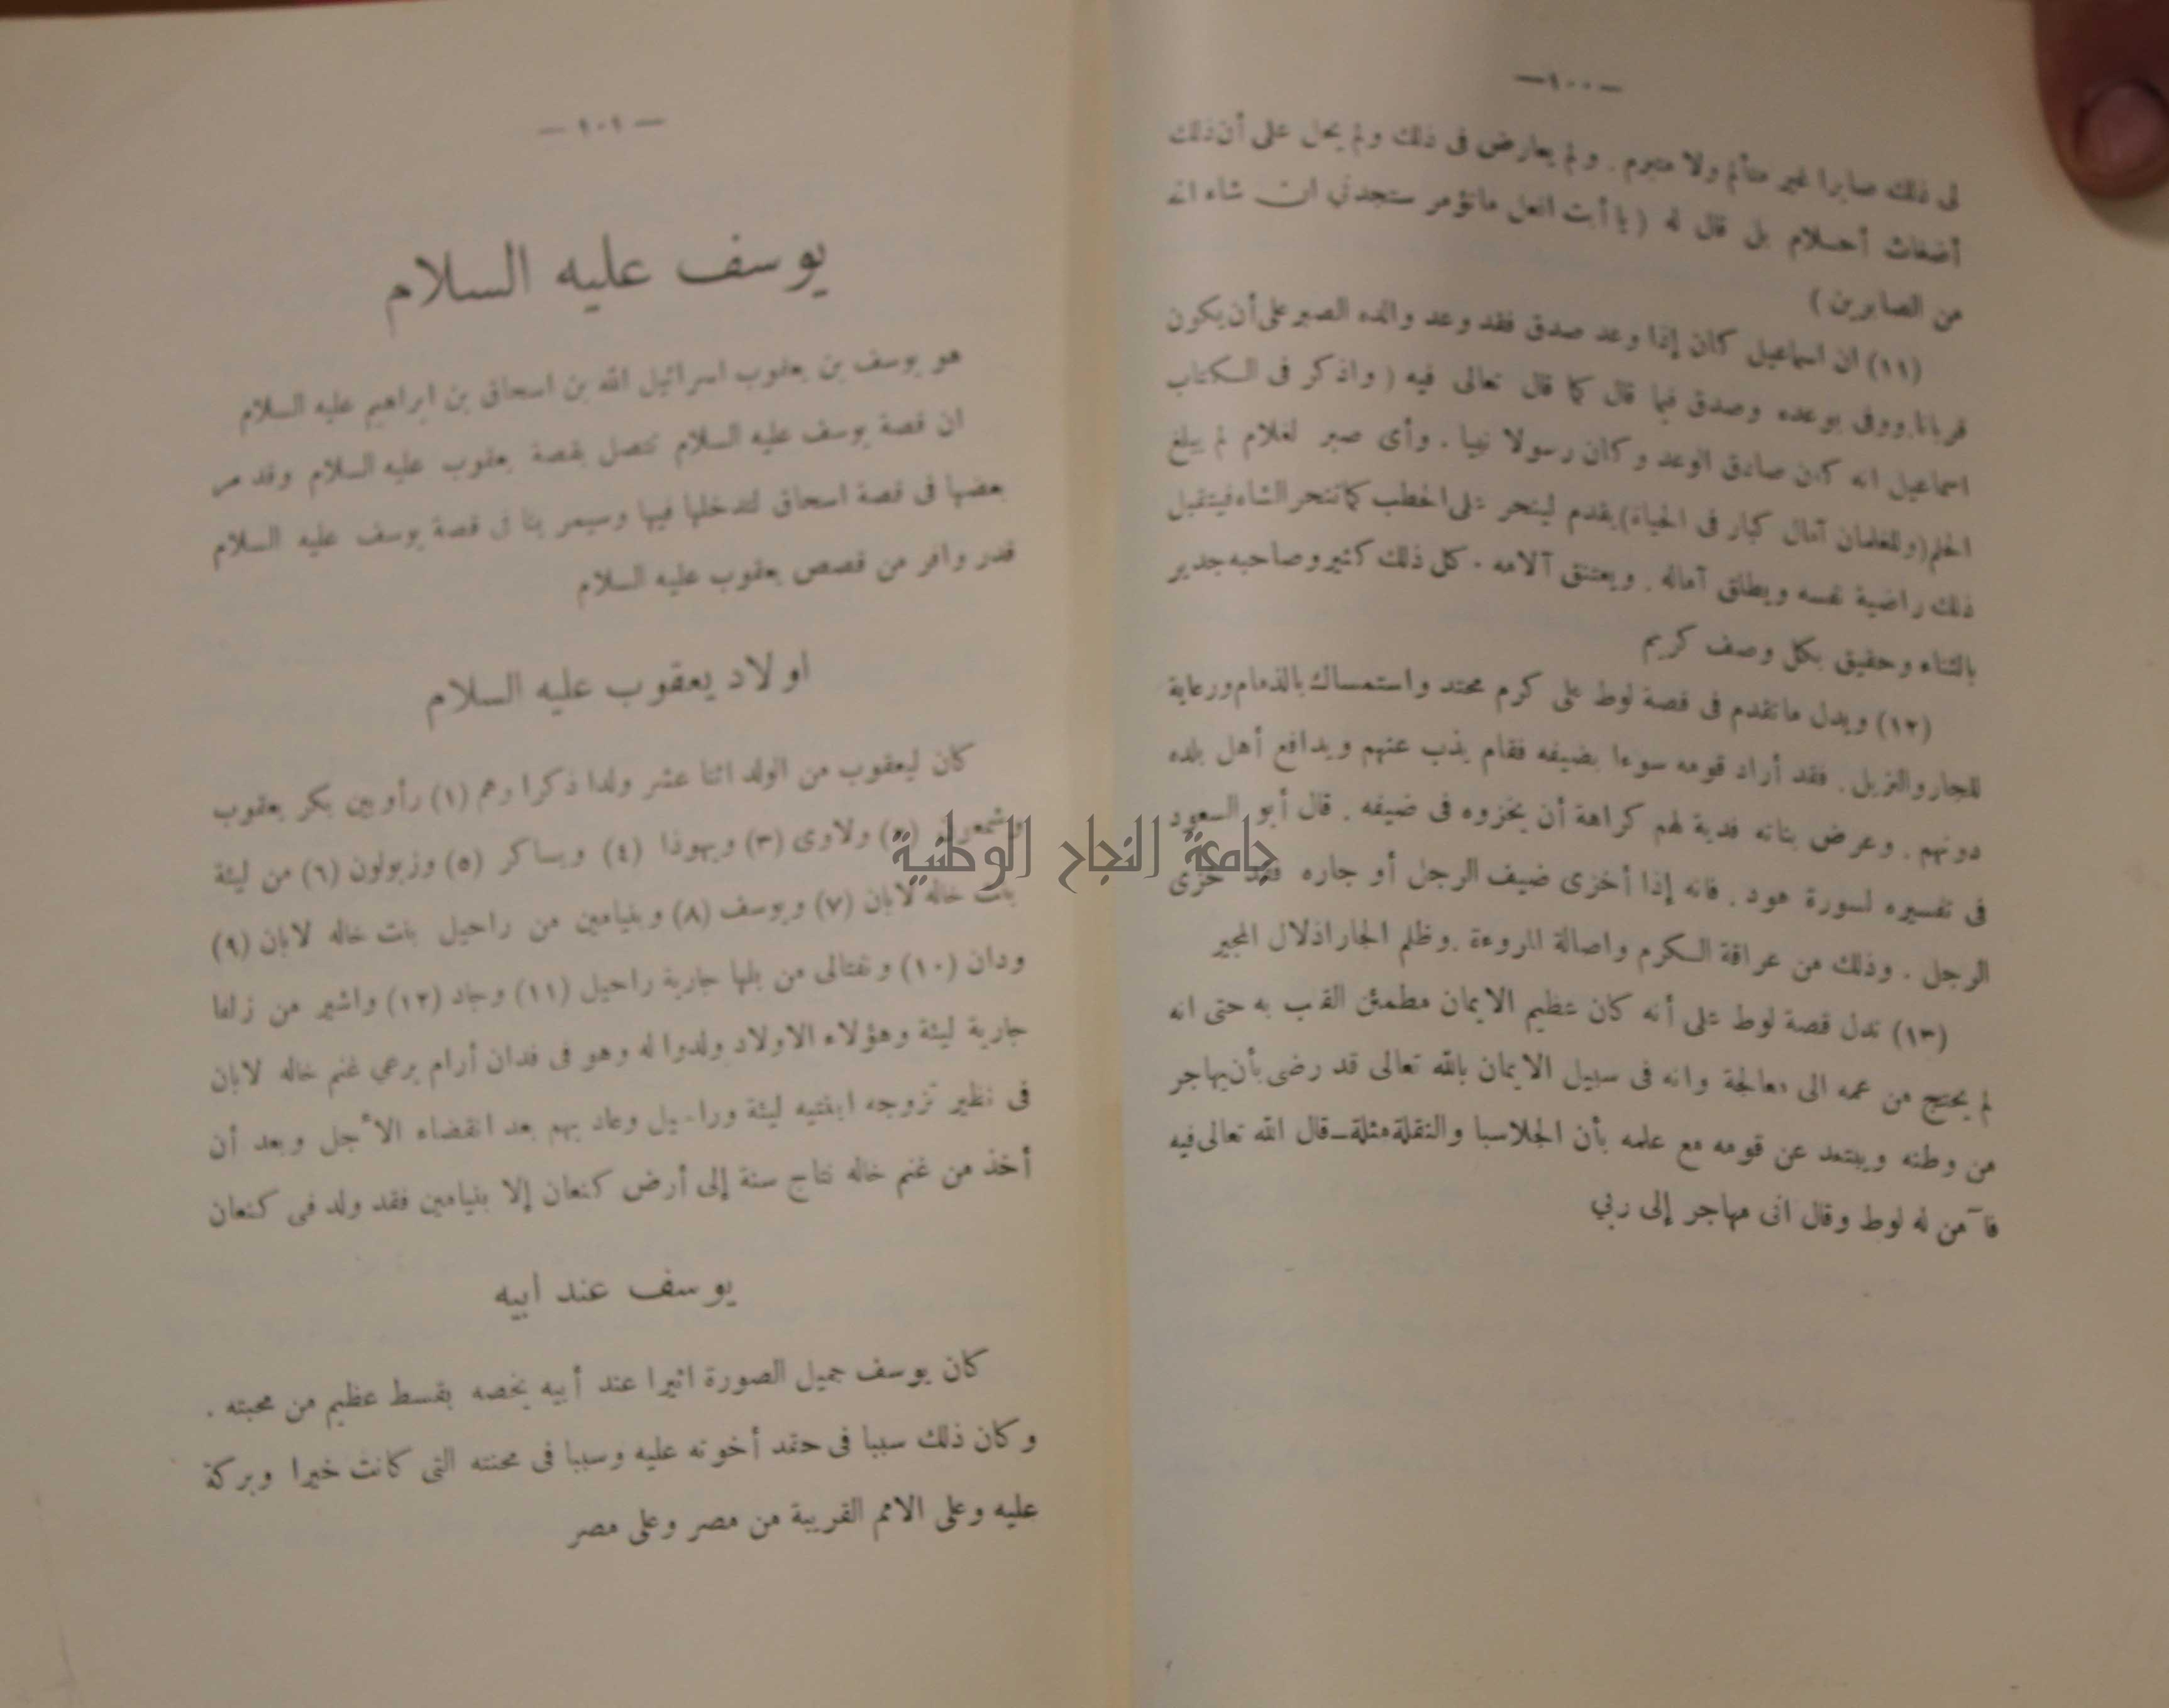 —١٠٠—
لى ذلك صابرا غير متألم ولا متبرم . ولم يعارض فى ذلك ولم يحل على أن ذلك
أضغاث أحلام بل قال له ( يا أبت افعل ماتؤمر ستجدني ان شاء الله
من الصابرين )
(١١) ان اسماعيل كان إذا وعد صدق فقد وعد والده الصبر على أن يكون
قربانا . ووفى بوعده وصدق فيما قال كما قال تعالى فيه ( واذكر فى الكتاب
اسماعيل انه كان صادق الوعد وكان رسولا نبيا . وأى صبر لغلام لم يبلغ
الحلم (وللغلمان آمال كبار فى الحياة) يقدم لينحر على الخطب كما تنحر الشاه فيتقبل
ذلك راضية نفسه ويطلق آماله . ويعتنق آلامه . كل ذلك كثير وصاحبه جدير
بالثناء وحقيق بكل وصف كريم
(١٢) ويدل ماتقدم فى قصة لوط على كرم محتد واستمساك بالذمام ورعاية
للجار والنزيل . فقد أراد قومه سوءا بضيفه فقام يذب عنهم ويدافع أهل بلده
دونهم . وعرض بناته فدية لهم كراهة أن يخزوه فى ضيفه . قال أبو السعود
فى تفسيره لسورة هود . فانه إذا أخزى ضيف الرجل أو جاره فقد خزى
الرجل . وذلك من عراقة الكرم واصالة المروءة . وظلم الجار اذلال المجير
(١٣) تدل قصة لوط على أنه كان عظيم الايمان مطمئن القلب به حتى انه
لم يحتج من عمه الى معالجة وانه فى سبيل الايمان بالله تعالى قد رضى بأن يهاجر
من وطنه ويبتعد عن قومه مع علمه بأن الجلاسبا والنقلة مثلة ــ قال الله تعالى فيه
فآمن له لوط وقال انى مهاجر إلى ربي
— ١٠١ —
يوسف عليه السلام
هو يوسف بن يعقوب اسرائيل الله بن اسحاق بن ابراهيم عليه السلام
ان قصة يوسف عليه السلام تتصل بقصة يعقوب عليه السلام وقد مر
بعضها فى قصة اسحاق لتدخلها فيها وسيمر بنا فى قصة يوسف عليه السلام
قدر وافر من قصص يعقوب عليه السلام
اولاد يعقوب عليه السلام
كان ليعقوب من الولد اثنا عشر ولدا ذكرا وهم (١) رأوبين بكر يعقوب
وشمعون (٢) ولاوى (٣) ويهوذا (٤) ويساكر (٥) وزبولون (٦) من ليئة
بنت خاله لابان (٧) ويوسف (٨) وبنيامين من راحيل بنت خاله لابان (٩)
ودان (١٠) ونفتالى من بلها جارية راحيل (١١) وجاد (١٢) واشير من زلفا
جارية ليئة وهؤلاء الاولاد ولدوا له وهو فى فدان أرام يرعي غنم خاله لابان
فى نظير تزوجه ابنتيه ليئة وراحيل وعاد بهم بعد انقضاء الأجل وبعد أن
أخذ من غنم خاله نتاج سنة إلى أرض كنعان إلا بنيامين فقد ولد فى كنعان
يوسف عند ابيه
كان يوسف جميل الصورة اثيرا عند أبيه يخصه بقسط عظيم من محبته .
وكان ذلك سببا فى حقد أخوته عليه وسببا فى محنته التى كانت خيرا وبركة
عليه وعلى الامم القريبة من مصر وعلى مصر
جامعة النجاح الوطنية